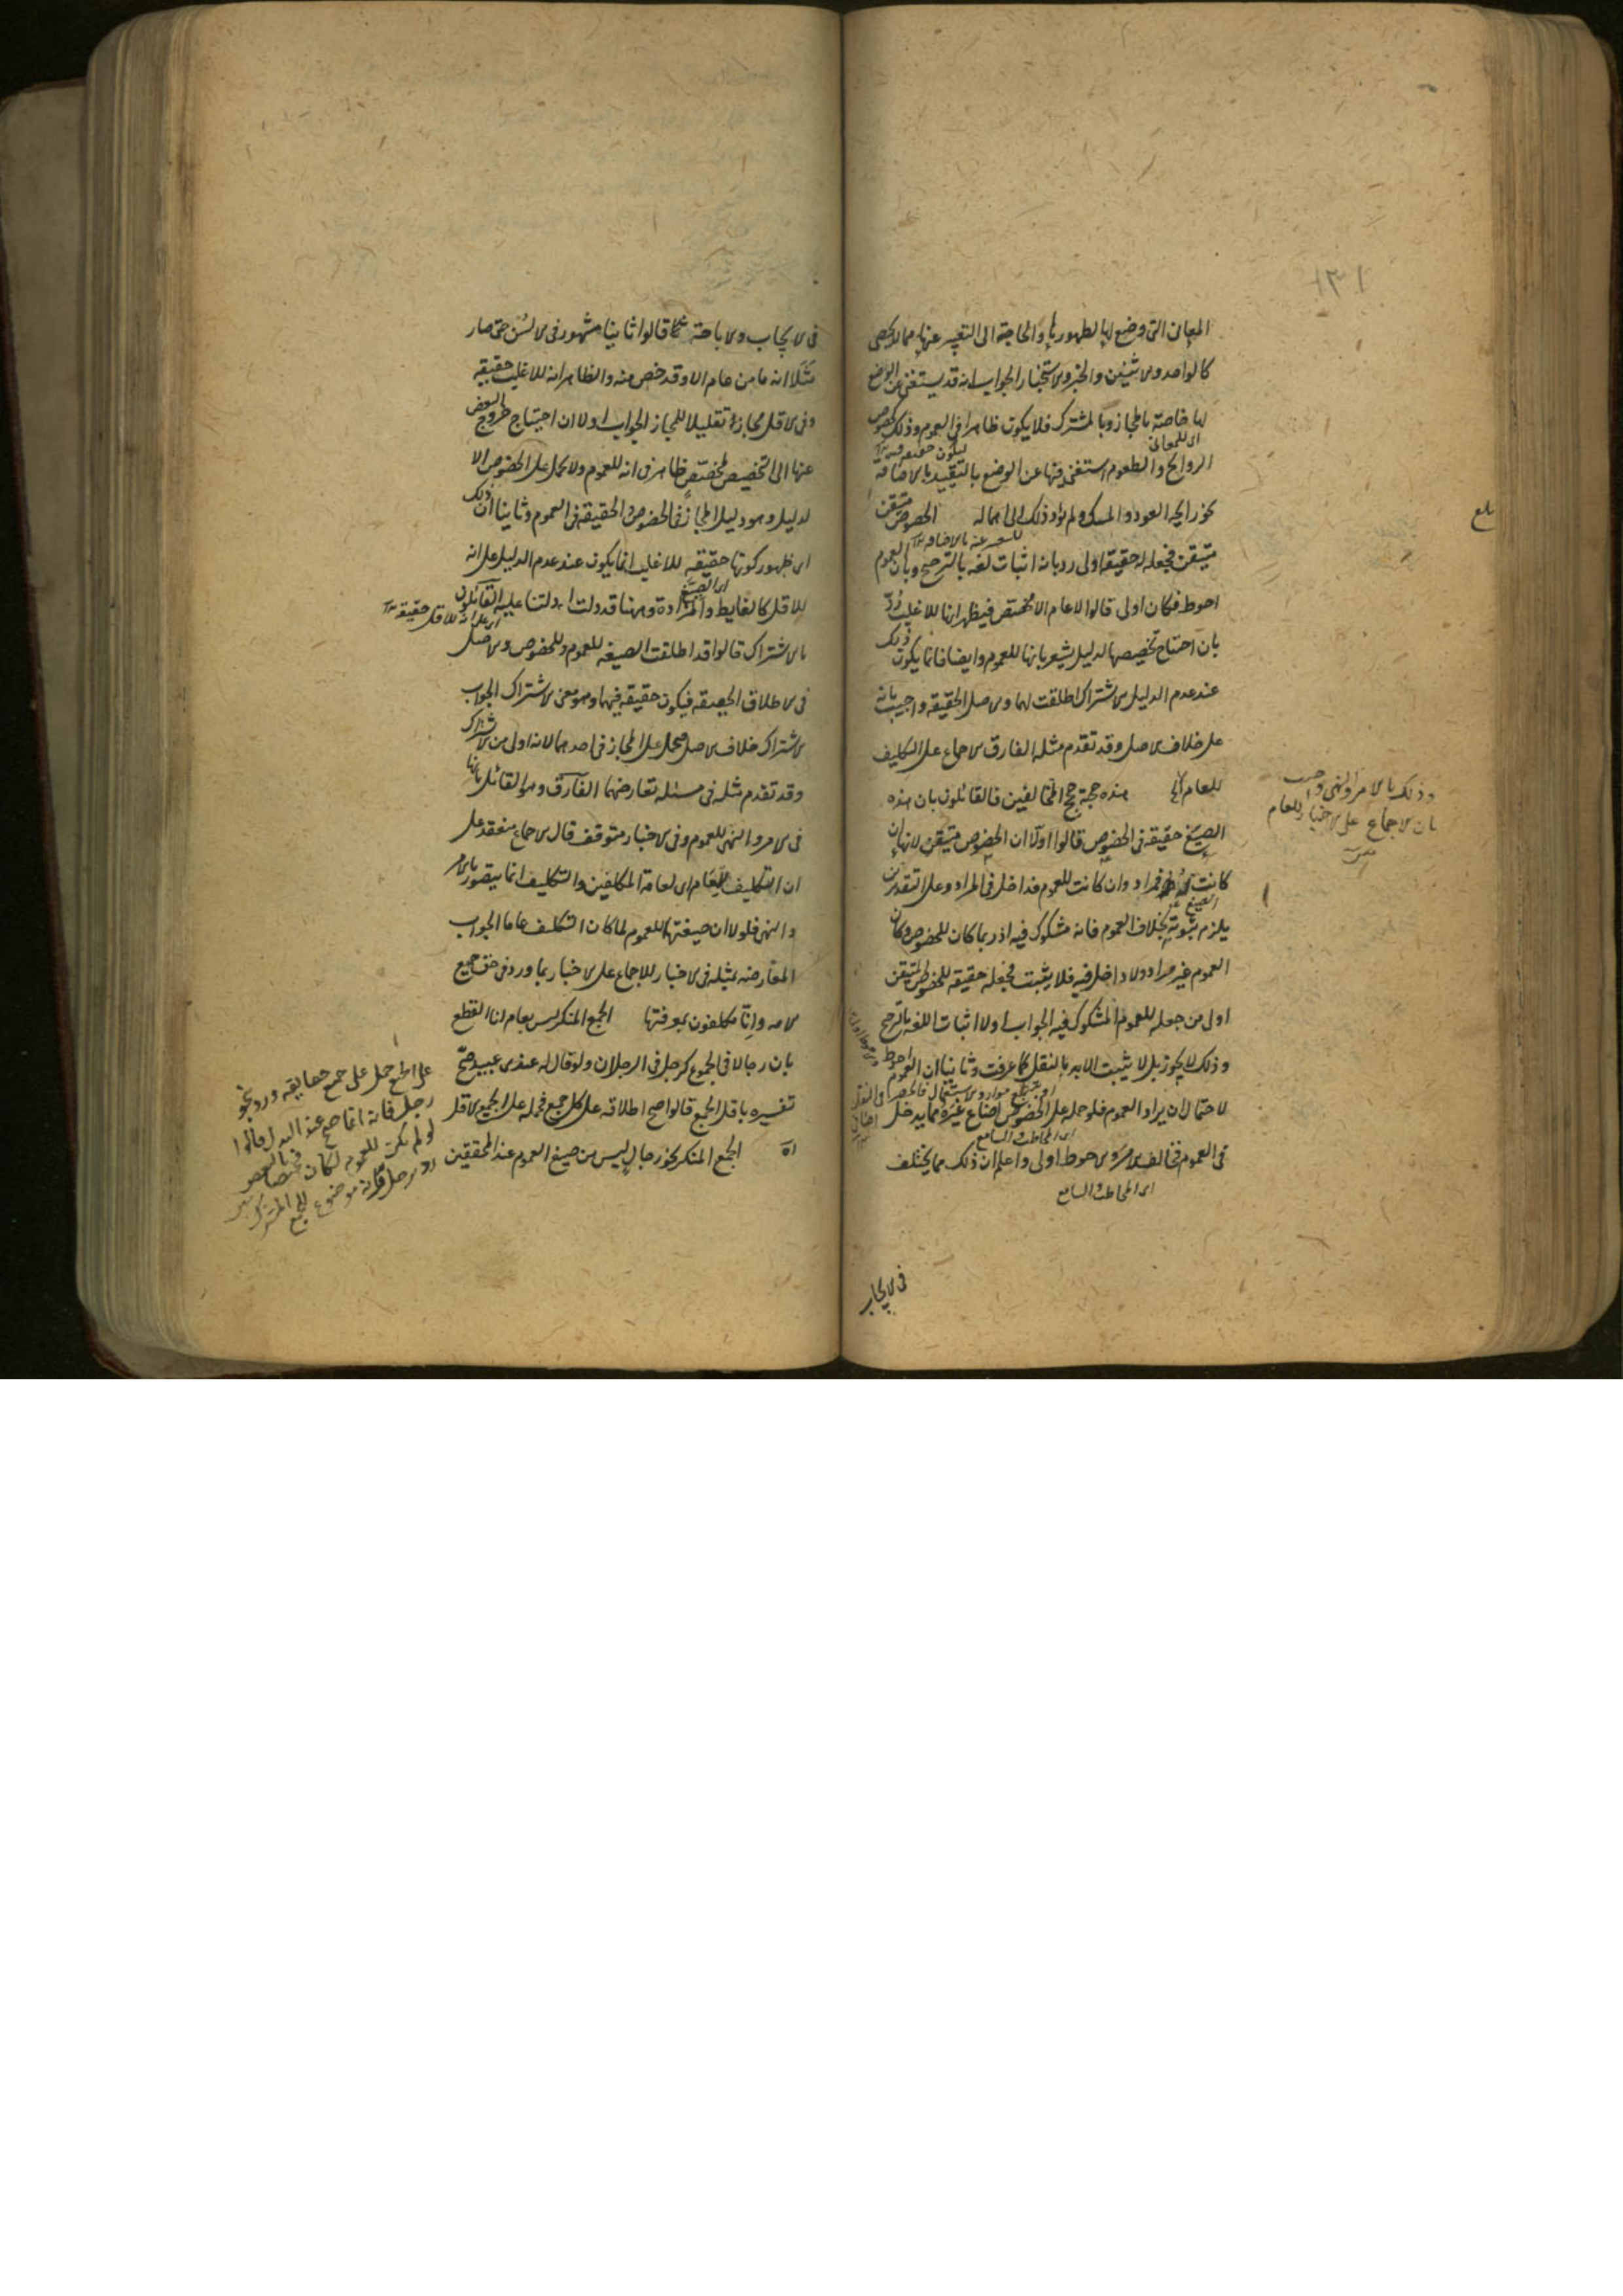 ١٣١
المعانى التى وضع لها لظهورها والحاجة الى التعبير عنها مما لا يحصى
كالواحد والاثنين والخبر والاستخبار الجواب انه قد يستغنى عن الوضع
لها خاصة بالمجاز وبالمشترك فلا يكون ظاهرا فى العموم وذلك كخصوص
الروايح والطعوم استغنى فيها عن الوضع بالتقييد بالاضافة
نحو رايحة العود والمسك ولم يؤد ذلك الى اهماله الخصوص متيقن
متيقن فجعله له حقيقة اولى رد بانه اثبات لغة بالترجيح وبان العموم
احوط فكان اولى قالوا لا عام الا مخصص فيظهر انها للاغلب رد
بان احتياج تخصيصها لدليل يشعر بانها للعموم وايضا فانما يكون ذلك
عند عدم الدليل الاشتراك اطلقت لهما والاصل الحقيقة واجيب بانه
على خلاف الاصل وقد تقدم مثله الفارق الاجماع على التكليف
للعام هذه حجة حجج المخالفين فالقائلون بان هذه
الصيغ حقيقة فى الخصوص قالوا اولا ان الخصوص متيقن لانها ان
كانت له فمراد وان كانت للعموم فداخل فى المراد وعلى التقديرين
يلزم ثبوته بخلاف العموم فانه مشكوك فيه اذ ربما كان للخصوص وكان
العموم غير مراد ولا داخل فيه فلا يثبت فجعله حقيقة للخصوص المتيقن
اولى من جعله للعموم المشكوك فيه الجواب اولا اثبات اللغة بالترجيح
وذلك لا يجوز بل لا يثبت الا بالنقل كما عرفت وثانيا ان العموم احوط
لاحتمال ان يراد العموم فلو حمله على الخصوص اضاع غيره مما يدخل
فى العموم فخالف الامر والاحوط اولى واعلم ان ذلك مما يختلف
اى المخاطب السامع
وذلك بالامر والنهى واجيب
بان الاجماع على الاخبار للعام
بلغ
فى الايجاب
فى الايجاب والاباحة كما قالوا ثانيا مشهور فى الالسن حتى صار
مثلا انه ما من عام الا وقد خص منه والظاهر انه للاغلب حقيقة
وفى الاقل مجازا تقليلا للمجاز الجواب اولا ان احتياج خروج البعض
عنها الى التخصيص بمخصص ظاهر فى انه للعموم ولا يحمل على الخصوص الا
لدليل وهو دليل المجاز فى الخصوص والحقيقة فى العموم وثانيا ان ذلك
اى ظهور كونها حقيقة للاغلب انما يكون عند عدم الدليل على انه
للاقل كالغايط والمزادة وههنا قد دلت ادلتنا عليه القائلون
بالاشتراك قالوا قد اطلقت الصيغة للعموم وللخصوص والاصل
فى الاطلاق الحقيقة فيكون حقيقة فيهما وهو معنى الاشتراك الجواب
الاشتراك خلاف الاصل فيحمل على المجاز فى احدهما لانه اولى من الاشتراك
وقد تقدم مثله فى مسئلة تعارضهما الفارق وهو القائل بانها
فى الامر والنهى للعموم وفى الاخبار متوقف قال الاجماع منعقد على
ان التكليف للعام اى لعامة المكلفين والتكليف انما يتصور بالامر
والنهى فلولا ان صيغتهما للعموم لما كان التكليف عاما الجواب
المعارضة بمثله فى الاخبار للاجماع على الاخبار بما ورد فى حق جميع
الامة وانا مكلفون بمعرفتها الجمع المنكر ليس بعام لنا القطع
بان رجالا فى الجموع كرجل فى الرجلان ولو قال له عندى عبيد صح
تفسيره باقل الجمع قالوا صح اطلاقه على كل جمع فحمله على الجميع
اه الجمع المنكر نحو رجال ليس من صيغ العموم عند المحققين
على الجمع حمل على جميع حقايقه ورد بنحو
رجل فانه انما صح عند البدل قالوا
لو لم يكن للعموم لكان مختصا بالبعض
رد برجل فانه موضوع للجمع المشترك